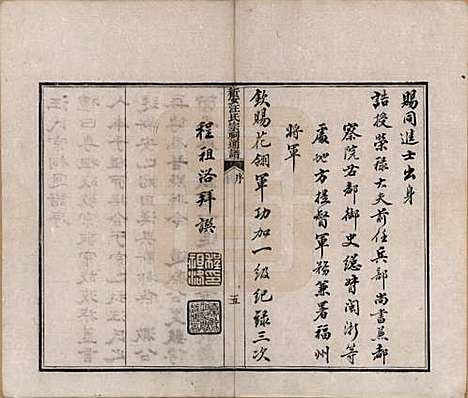 賜同進士出身
誥授榮祿大夫前任兵部尚書兼都
察院右都御史總督閩浙等
處地方提督軍務兼署福州
將軍
欽賜花翎軍功加一級紀錄三次
程祖洛拜譔
新安汪氏宗祠通譜
序
五